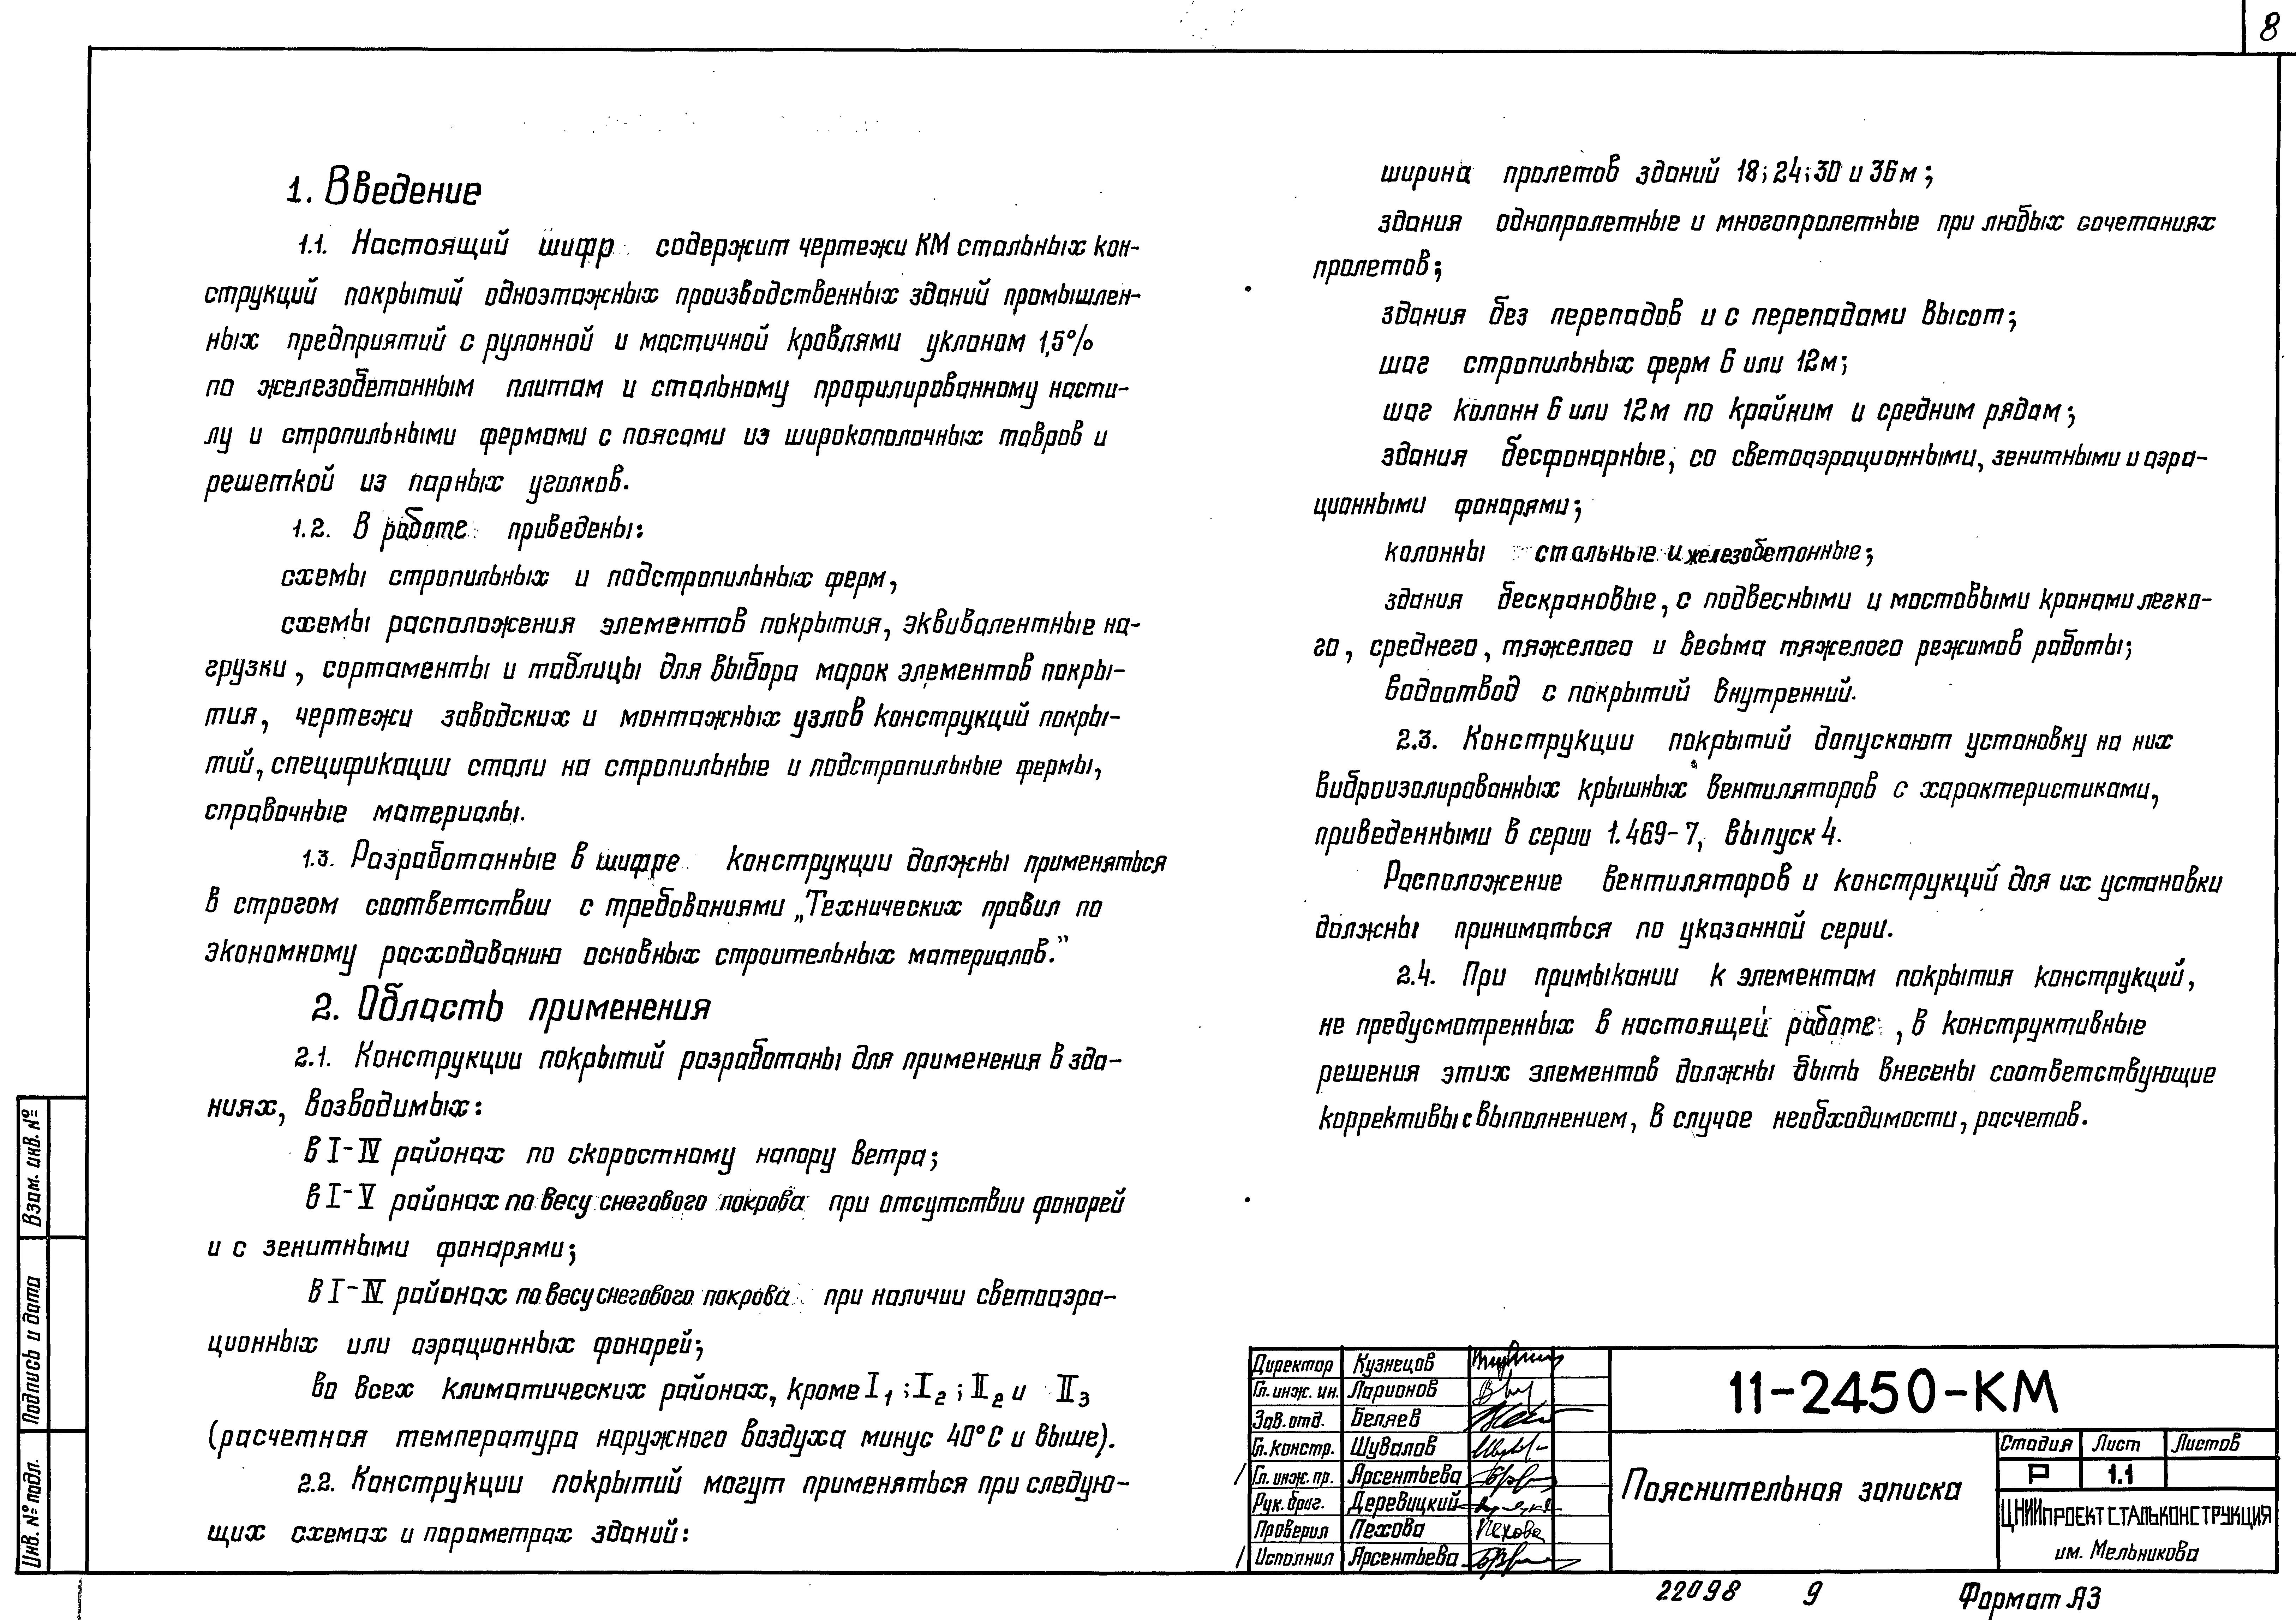 8
1. Введение
1.1. Настоящий шифр содержит чертежи КМ стальных кон-
струкций покрытий одноэтажных производственных зданий промышлен-
ных предприятий с рулонной и мастичной кровлями уклоном 1,5%
по железобетонным плитам и стальному профилированному насти-
лу и стропильными фермами с поясами из широкополочных тавров и
решеткой из парных уголков.
1.2. В работе приведены:
схемы стропильных и подстропильных ферм,
схемы расположения элементов покрытия, эквивалентные на-
грузки, сортаменты и таблицы для выбора марок элементов покры-
тия, чертежи заводских и монтажных узлов конструкций покры-
тий, спецификации стали на стропильные и подстропильные фермы,
справочные материалы.
1.3. Разработанные в шифре конструкции должны применяться
в строгом соответствии с требованиями „Технических правил по
экономному расходованию основных строительных материалов."
2. Область применения
2.1. Конструкции покрытий разработаны для применения в зда-
ниях, возводимых:
в I-IV районах по скоростному напору ветра;
в I-V районах по весу снегового покрова при отсутствии фонарей
и с зенитными фонарями;
в I-IV районах по весу снегового покрова при наличии светоаэра-
ционных или аэрационных фонарей;
во всех климатических районах, кроме I₁; I₂; II₂ и II₃
(расчетная температура наружного воздуха минус 40°С и выше).
2.2. Конструкции покрытий могут применяться при следую-
щих схемах и параметрах зданий:
ширина пролетов зданий 18; 24; 30 и 36м;
здания однопролетные и многопролетные при любых сочетаниях
пролетов;
здания без перепадов и с перепадами высот;
шаг стропильных ферм 6 или 12м;
шаг колонн 6 или 12м по крайним и средним рядам;
здания бесфонарные, со светоаэрационными, зенитными и аэра-
ционными фонарями;
колонны стальные и железобетонные;
здания бескрановые, с подвесными и мостовыми кранами легко-
го, среднего, тяжелого и весьма тяжелого режимов работы;
водоотвод с покрытий внутренний.
2.3. Конструкции покрытий допускают установку на них
виброизолированных крышных вентиляторов с характеристиками,
приведенными в серии 1.469-7, выпуск 4.
Расположение вентиляторов и конструкций для их установки
должны приниматься по указанной серии.
2.4. При примыкании к элементам покрытия конструкций,
не предусмотренных в настоящей работе, в конструктивные
решения этих элементов должны быть внесены соответствующие
коррективы с выполнением, в случае необходимости, расчетов.
Взам. инв. №
Подпись и дата
Инв. № подл.
Директор Кузнецов
Гл. инж. ин. Ларионов
Зав. отд. Беляев
Гл. констр. Шувалов
Гл. инж. пр. Арсентьева
Рук. бриг. Деревицкий
Проверил Пехова Пехова
Исполнил Арсентьева
11-2450-КМ
Пояснительная записка
Стадия Лист Листов
Р 1.1
ЦНИИПРОЕКТСТАЛЬКОНСТРУКЦИЯ
им. Мельникова
22098 9 Формат А3